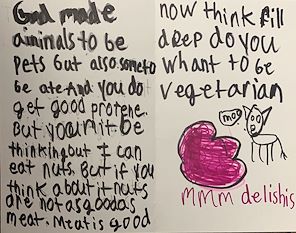 God made
ainimals to be
pets but also some to
be ate And you do
get good protene.
But you mit be
thinking but I can
eat nuts But if you
think about it nuts
are not as good as
meat. Meat is good
now think rill
deep do you
whant to be
vegetarian
moo
MMM delishis